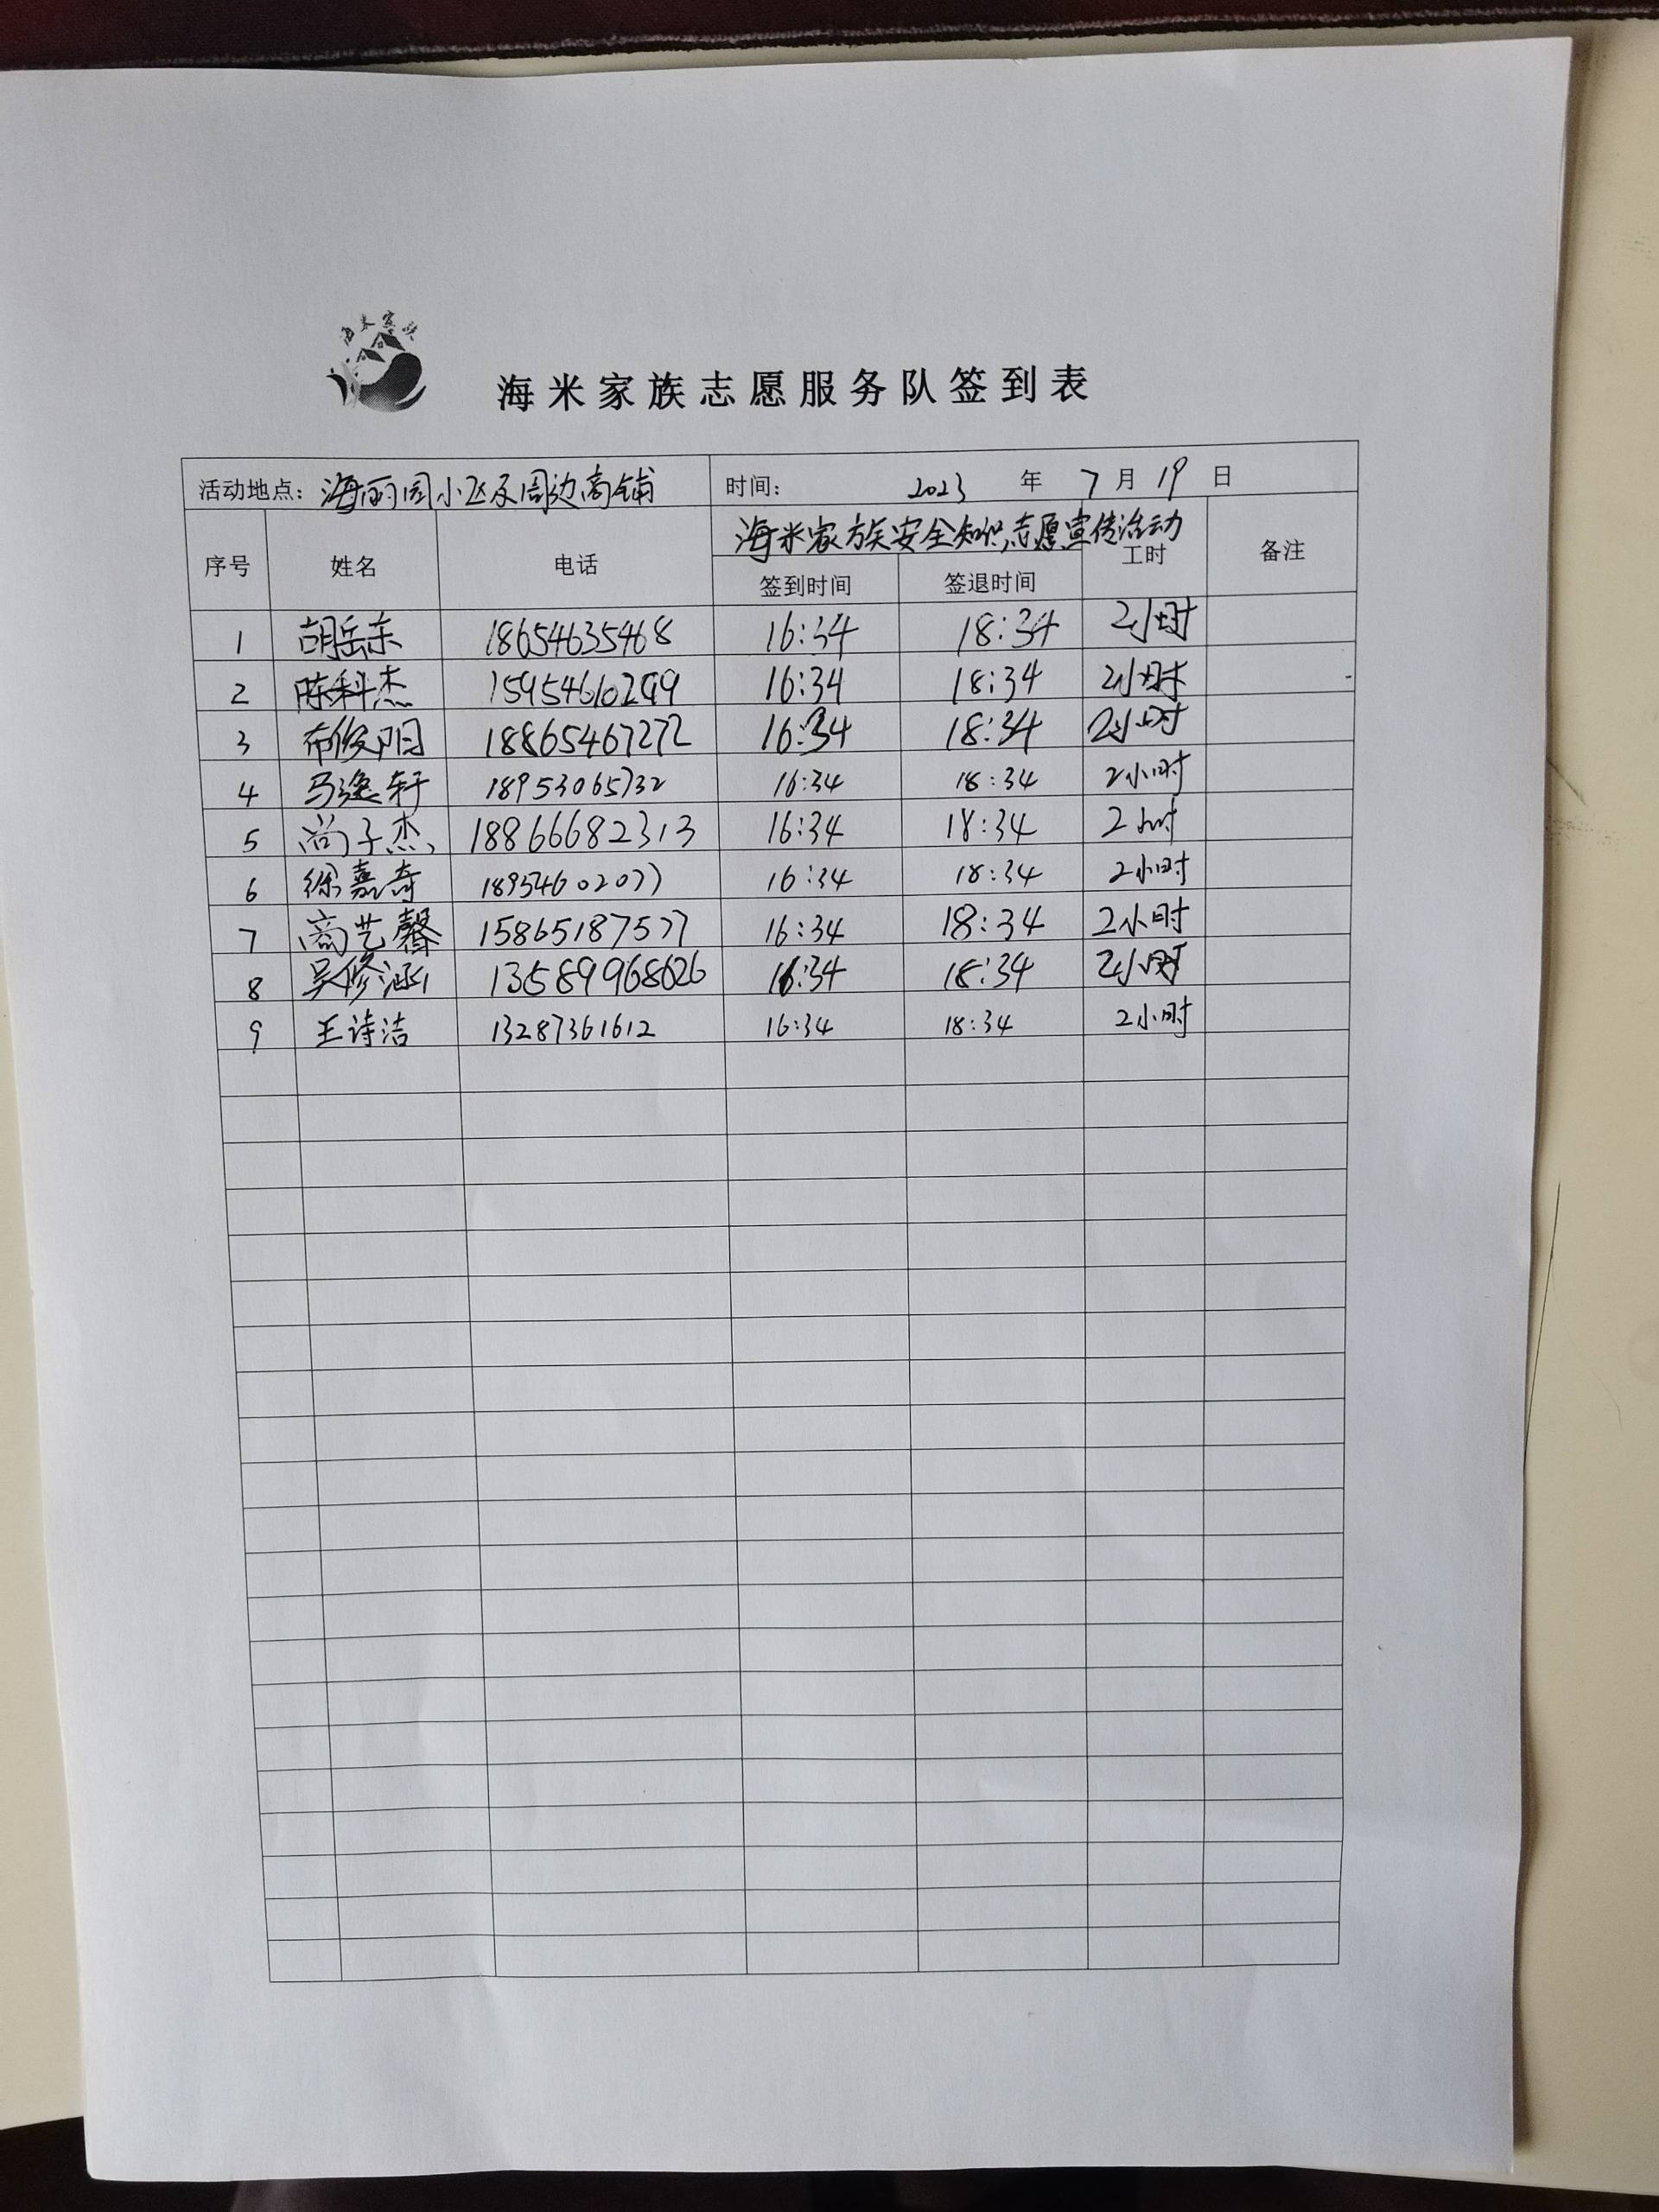 海米家族
海米家族志愿服务队签到表
活动地点：海丽园小区及周边商铺 时间： 2023 年 7 月 19 日
序号 姓名 电话 海米家族安全知识志愿宣传活动 工时 备注
签到时间 签退时间
1 胡岳东 18654635468 16:34 18:34 2小时
2 陈科杰 15954610299 16:34 18:34 2小时
3 布俊阳 18865467272 16:34 18:34 2小时
4 马逸轩 18953065732 16:34 18:34 2小时
5 尚子杰 18866682313 16:34 18:34 2小时
6 徐嘉奇 18954602077 16:34 18:34 2小时
7 商艺馨 15865187577 16:34 18:34 2小时
8 吴修涵 13589968626 16:34 18:34 2小时
9 王诗洁 13287361612 16:34 18:34 2小时